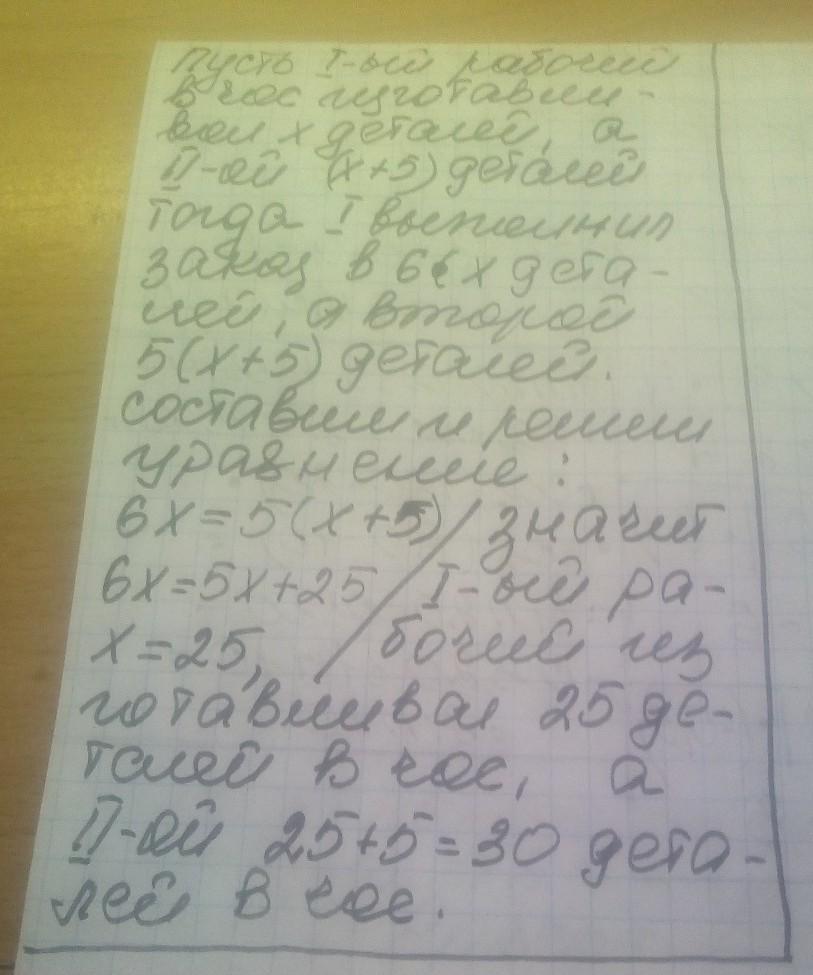 Пусть I-ый рабочий
в час изготавли-
вал x деталей, а
II-ой (x+5) деталей
тогда I выполнил
заказ в 6x дета-
лей, а второй
5(x+5) деталей.
составим и решим
уравнение:
6x=5(x+5) / значит
6x=5x+25 / I-ый ра-
x=25, / бочий из
готавливал 25 де-
талей в час, а
II-ой 25+5=30 дета-
лей в час.